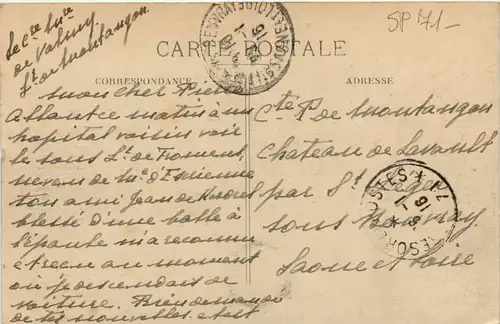 Le Cte Mce
de Valmy
St de Montangon
SP 71-
CARTE POSTALE
CORRESPONDANCE
ADRESSE
Mon cher Pierre
Allant ce matin à un
hopital voisin voir
le sous Lt. de Froment,
neveu de Me d'Estienne
ton ami Jean de
blessé d'une balle à
l'épaule m'a reconnu
et reçu au moment
où je descendais de
voiture. Bien demandé
de tes nouvelles et est
Cte P. de Montangon
Chateau de Lavault
par St Leger
sous Beuvray
Saone et Loire